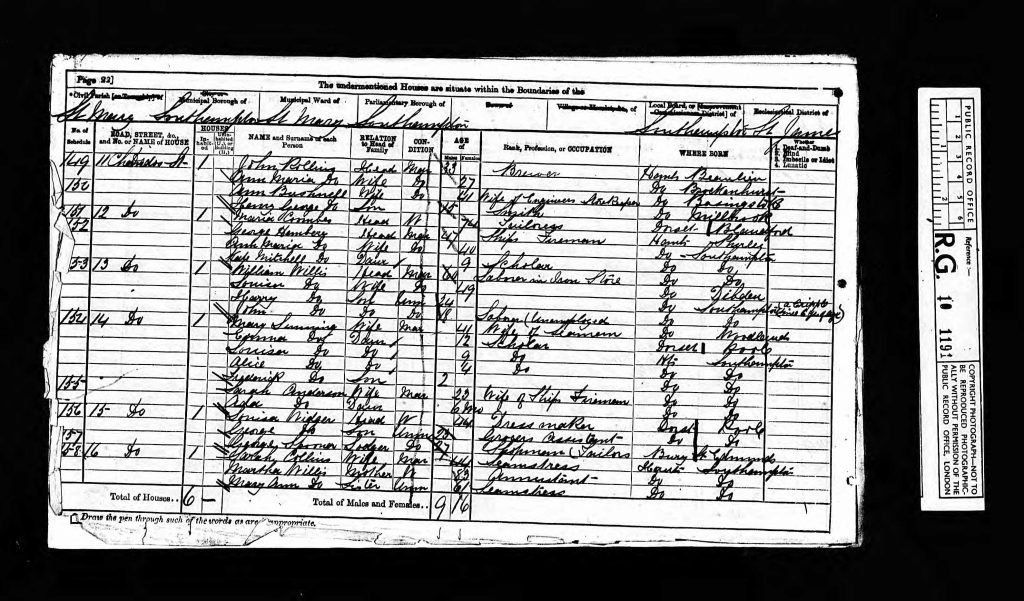 Page 22]
The undermentioned Houses are situate within the Boundaries of the
Civil Parish [or Township] of
Municipal Borough of
Municipal Ward of
Parliamentary Borough of
Town of
Village or Hamlet, &c., of
Local Board, or [Improvement Commissioners District] of
Ecclesiastical District of
St Mary Southampton St Mary Southampton Southampton St James
No. of Schedule
ROAD, STREET, &c., and No. or NAME of HOUSE
HOUSES
In-habited
NAME and Surname of each Person
RELATION to Head of Family
CON-DITION
AGE of
Males Females
Rank, Profession, or OCCUPATION
WHERE BORN
Whether
1. Deaf-and-Dumb
2. Blind
3. Imbecile or Idiot
4. Lunatic
149 11 St 1 John Head Mar 33 Brewer Hants Beaulieu
Ann Maria Do Wife Do 27 Do Brockenhurst
150 Ann Wife Do 41 Wife of Engineer Do Basingstoke
Henry George Do Son 15 Smith Do Millbrook
151 12 Do 1 Maria Coombes Head W 74 Tailoress Dorset Blandford
152 George Head Mar 47 Ships Fireman Hants Shirley
Ann Maria Do Wife Do 40 Do Southampton
Kate Mitchell Do Daur 9 Scholar Do Do
153 13 Do 1 William Willis Head Mar Labourer in Iron Store Do Do
Louisa Do Wife Do 49 Do
Harry Do Son Unm 24 Do Southampton
John Do Do Do 18 Labour (Unemployed Do Do
154 14 Do 1 Mary Wife Mar 41 Wife of Do
Emma Do Daur 12 Scholar Dorset Poole
Louisa Do Do 9 Do Hts Southampton
Alice Do Do 4 Do Do Do
Frederick Do Son 2 Do Do
155 Sarah Anderson Wife Mar 23 Wife of Ship Fireman Do Do
Ada Do Daur 6 Mo Do Do
156 15 Do 1 Louisa Widger Head W Dress maker Dorset Poole
George Do Son Unm Grocers Assistant Do Do
157 Lodger Do (Tailors Bury St Edmunds
158 16 Do 1 Sarah Collins Wife Mar 44 Seamstress Hants Southampton
Martha Willis Mother W 83 Annuitant Do Do
Mary Ann Do Sister Unm 61 Seamstress Do Do
Total of Houses.. 6 —
Total of Males and Females.. 9 16
Draw the pen through such of the words as are inappropriate.
PUBLIC RECORD OFFICE
1 2 3 4 5 6
Reference :-
R.G. 10 1191
COPYRIGHT PHOTOGRAPH—NOT TO
BE REPRODUCED PHOTOGRAPHIC-
ALLY WITHOUT PERMISSION OF THE
PUBLIC RECORD OFFICE, LONDON